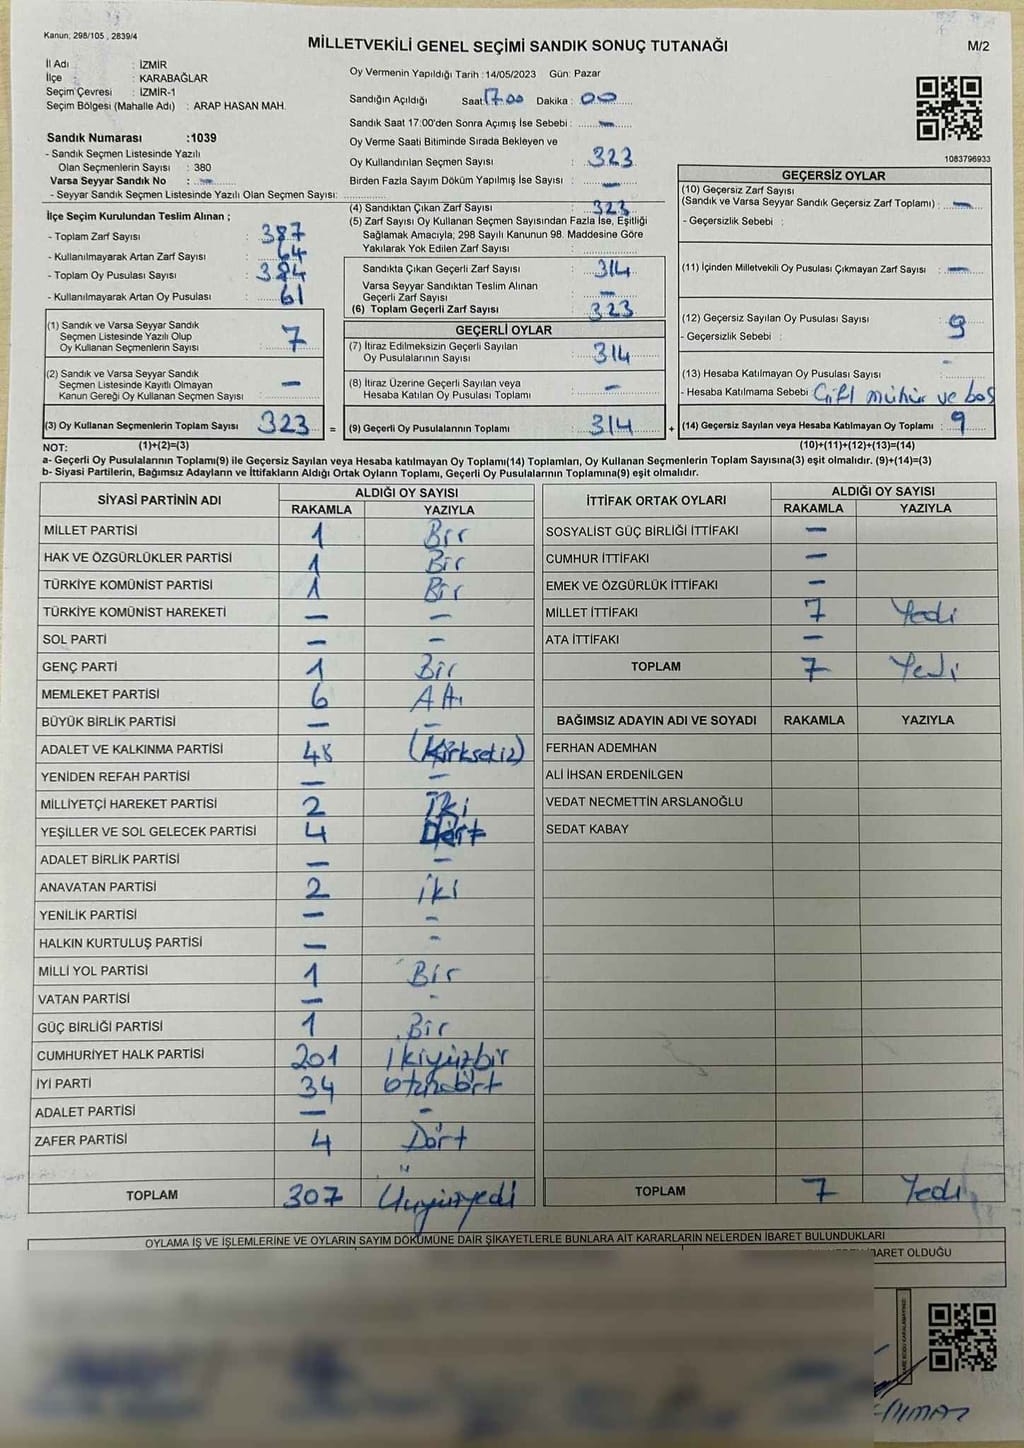 Kanun; 298/105 , 2839/4
MİLLETVEKİLİ GENEL SEÇİMİ SANDIK SONUÇ TUTANAĞI
M/2
İl Adı : İZMİR
İlçe : KARABAĞLAR
Seçim Çevresi : İZMİR-1
Seçim Bölgesi (Mahalle Adı) : ARAP HASAN MAH.
Sandık Numarası :1039
- Sandık Seçmen Listesinde Yazılı
Olan Seçmenlerin Sayısı : 380
Varsa Seyyar Sandık No : —
- Seyyar Sandık Seçmen Listesinde Yazılı Olan Seçmen Sayısı:
İlçe Seçim Kurulundan Teslim Alınan ;
- Toplam Zarf Sayısı : 387
- Kullanılmayarak Artan Zarf Sayısı : 64
- Toplam Oy Pusulası Sayısı : 384
- Kullanılmayarak Artan Oy Pusulası : 61
(1) Sandık ve Varsa Seyyar Sandık
Seçmen Listesinde Yazılı Olup
Oy Kullanan Seçmenlerin Sayısı : 7
(2) Sandık ve Varsa Seyyar Sandık
Seçmen Listesinde Kayıtlı Olmayan
Kanun Gereği Oy Kullanan Seçmen Sayısı : —
(3) Oy Kullanan Seçmenlerin Toplam Sayısı : 323 =
Oy Vermenin Yapıldığı Tarih :14/05/2023 Gün: Pazar
Sandığın Açıldığı Saat: 17.00 Dakika : 00
Sandık Saat 17:00'den Sonra Açımış İse Sebebi : —
Oy Verme Saati Bitiminde Sırada Bekleyen ve
Oy Kullandırılan Seçmen Sayısı : 323
Birden Fazla Sayım Döküm Yapılmış İse Sayısı : —
(4) Sandıktan Çıkan Zarf Sayısı : 323
(5) Zarf Sayısı Oy Kullanan Seçmen Sayısından Fazla İse, Eşitliği
Sağlamak Amacıyla, 298 Sayılı Kanunun 98. Maddesine Göre
Yakılarak Yok Edilen Zarf Sayısı :
Sandıkta Çıkan Geçerli Zarf Sayısı : 314
Varsa Seyyar Sandıktan Teslim Alınan
Geçerli Zarf Sayısı : —
(6) Toplam Geçerli Zarf Sayısı : 323
GEÇERLİ OYLAR
(7) İtiraz Edilmeksizin Geçerli Sayılan
Oy Pusulalarının Sayısı : 314
(8) İtiraz Üzerine Geçerli Sayılan veya
Hesaba Katılan Oy Pusulası Toplamı : —
(9) Geçerli Oy Pusulalarının Toplamı : 314 +
1083796933
GEÇERSİZ OYLAR
(10) Geçersiz Zarf Sayısı
(Sandık ve Varsa Seyyar Sandık Geçersiz Zarf Toplamı) : —
- Geçersizlik Sebebi :
(11) İçinden Milletvekili Oy Pusulası Çıkmayan Zarf Sayısı : —
(12) Geçersiz Sayılan Oy Pusulası Sayısı : 9
- Geçersizlik Sebebi :
(13) Hesaba Katılmayan Oy Pusulası Sayısı : -
- Hesaba Katılmama Sebebi Çift mühür ve boş
(14) Geçersiz Sayılan veya Hesaba Katılmayan Oy Toplamı : 9
NOT: (1)+(2)=(3) (10)+(11)+(12)+(13)=(14)
a- Geçerli Oy Pusulalarının Toplamı(9) ile Geçersiz Sayılan veya Hesaba katılmayan Oy Toplamı(14) Toplamları, Oy Kullanan Seçmenlerin Toplam Sayısına(3) eşit olmalıdır. (9)+(14)=(3)
b- Siyasi Partilerin, Bağımsız Adayların ve İttifakların Aldığı Ortak Oyların Toplamı, Geçerli Oy Pusulalarının Toplamına(9) eşit olmalıdır.
SİYASİ PARTİNİN ADI ALDIĞI OY SAYISI
RAKAMLA YAZIYLA
MİLLET PARTİSİ 1 Bir
HAK VE ÖZGÜRLÜKLER PARTİSİ 1 Bir
TÜRKİYE KOMÜNİST PARTİSİ 1 Bir
TÜRKİYE KOMÜNİST HAREKETİ — —
SOL PARTİ — —
GENÇ PARTİ 1 Bir
MEMLEKET PARTİSİ 6 Altı
BÜYÜK BİRLİK PARTİSİ — —
ADALET VE KALKINMA PARTİSİ 48 (Kırksekiz)
YENİDEN REFAH PARTİSİ — —
MİLLİYETÇİ HAREKET PARTİSİ 2 İki
YEŞİLLER VE SOL GELECEK PARTİSİ 4 Dört
ADALET BİRLİK PARTİSİ — —
ANAVATAN PARTİSİ 2 iki
YENİLİK PARTİSİ — —
HALKIN KURTULUŞ PARTİSİ — —
MİLLİ YOL PARTİSİ 1 Bir
VATAN PARTİSİ — -
GÜÇ BİRLİĞİ PARTİSİ 1 Bir
CUMHURİYET HALK PARTİSİ 201 ikiyüzbir
İYİ PARTİ 34 otuzdört
ADALET PARTİSİ — -
ZAFER PARTİSİ 4 Dört
TOPLAM 307 Üçyüzyedi
İTTİFAK ORTAK OYLARI ALDIĞI OY SAYISI
RAKAMLA YAZIYLA
SOSYALİST GÜÇ BİRLİĞİ İTTİFAKI —
CUMHUR İTTİFAKI —
EMEK VE ÖZGÜRLÜK İTTİFAKI —
MİLLET İTTİFAKI 7 Yedi
ATA İTTİFAKI —
TOPLAM 7 Yedi
BAĞIMSIZ ADAYIN ADI VE SOYADI RAKAMLA YAZIYLA
FERHAN ADEMHAN
ALİ İHSAN ERDENİLGEN
VEDAT NECMETTİN ARSLANOĞLU
SEDAT KABAY
TOPLAM 7 Yedi
OYLAMA İŞ VE İŞLEMLERİNE VE OYLARIN SAYIM DÖKÜMÜNE DAİR ŞİKAYETLERLE BUNLARA AİT KARARLARIN NELERDEN İBARET BULUNDUKLARI
İBARET OLDUĞU